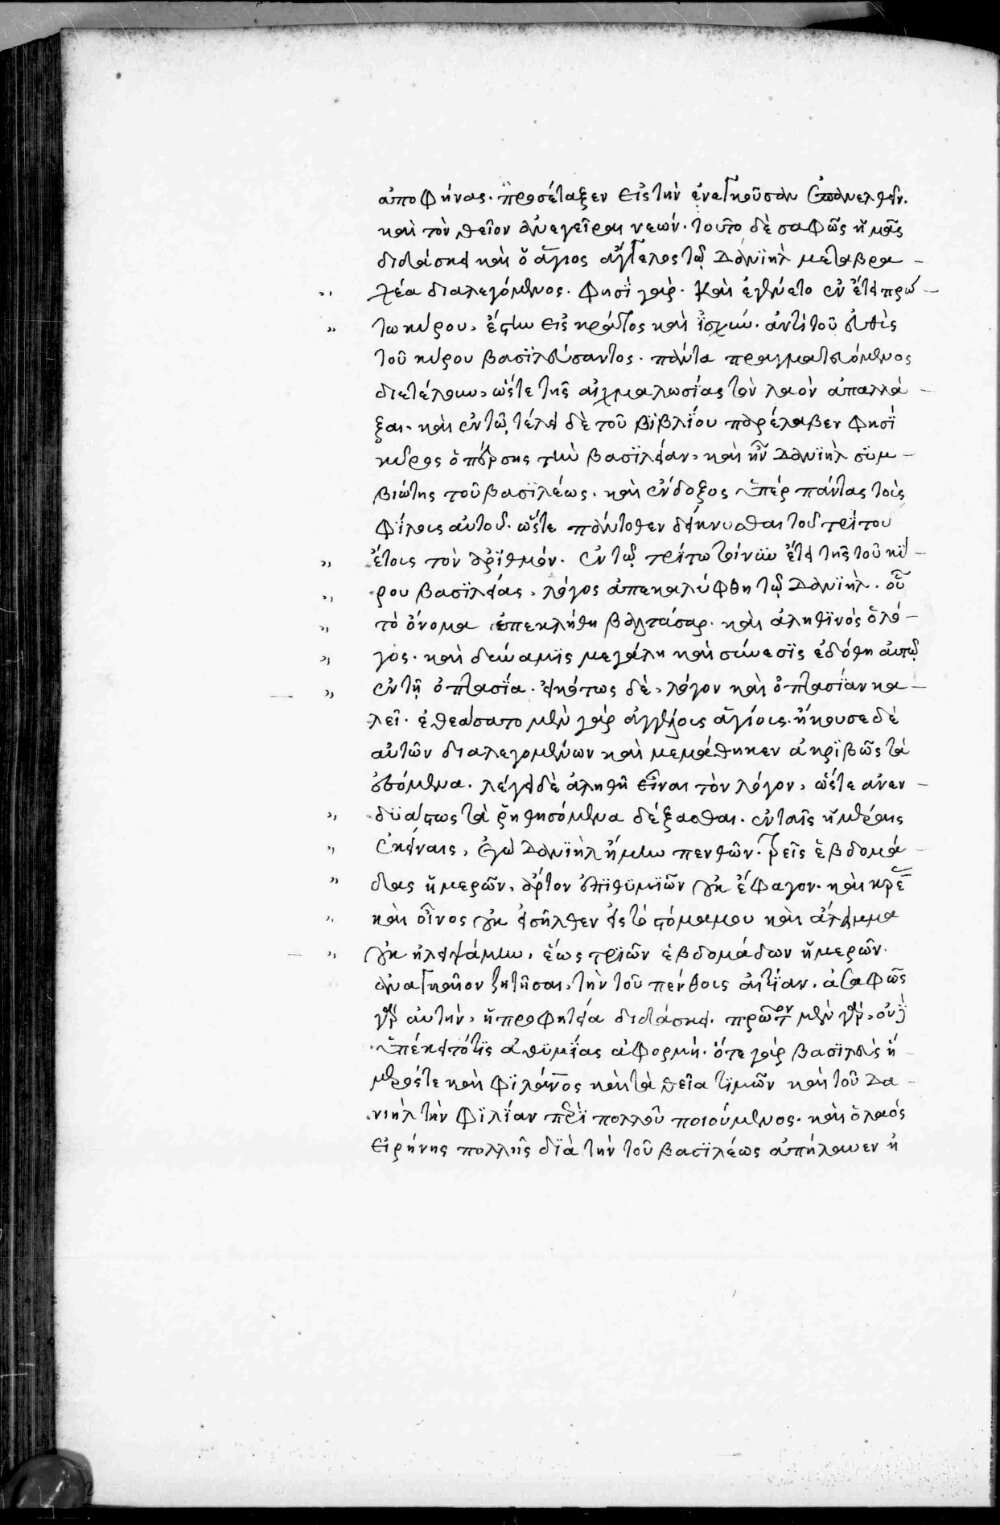 ἀποφήνας· προσέταξεν εἰς τὴν ἐνεγκοῦσαν ἐπανελθεῖν.
καὶ τὸν θεῖον ἀνεγεῖραι νεών· τοῦτο δὲ σαφῶς ἡμᾶς
διδάσκει καὶ ὁ ἅγιος ἄγγελος τῷ Δανιὴλ μεταβρα
χέα διαλεγόμενος· φησὶ γάρ· καὶ ἐγένετο ἐν ἔτει πρώ
τω κύρου, ἔστην εἰς κράτος καὶ ἰσχύν· ἀντὶ τοῦ εὐθὺς
τοῦ κύρου βασιλεύσαντος· πάντα πραγματευόμενος
διετέλουν, ὥστε τῆς αἰχμαλωσίας τὸν λαὸν ἀπαλλά
ξαι· καὶ ἐν τῷ τέλει δὲ τοῦ βιβλίου παρέλαβεν φησὶ
κύρος ὁ πέρσης τὴν βασιλείαν, καὶ ἦν Δανιὴλ συμ
βιώτης τοῦ βασιλέως· καὶ ἔνδοξος ὑπὲρ πάντας τοὺς
φίλους αὐτοῦ· ὥστε πάντοθεν δείκνυσθαι τοῦ τρίτου
ἔτους τὸν ἀριθμόν· ἐν τῷ τρίτω τοίνυν ἔτει τῆς τοῦ κύ
ρου βασιλείας, λόγος ἀπεκαλύφθη τῷ Δανιὴλ· οὗ
τὸ ὄνομα ἐπεκλήθη βαλτάσαρ· καὶ ἀληθινὸς ὁ λό
γος· καὶ δύναμις μεγάλη καὶ σύνεσις ἐδόθη αὐτῷ
ἐν τῇ ὀπτασία· εἰκότως δὲ, λόγον καὶ ὀπτασίαν κα
λεῖ· ἐθεάσατο μὲν γὰρ ἀγγέλους ἁγίους· ἤκουσε δὲ
αὐτῶν διαλεγομένων καὶ μεμάθηκεν ἀκριβῶς τὰ
ἐσόμενα· λέγει δὲ ἀληθῆ εἶναι τὸν λόγον, ὥστε ἀνεν
δυάστως τὰ ῥηθησόμενα δέξασθαι· ἐν ταῖς ἡμέραις
ἐκείναις, ἐγὼ Δανιὴλ ἤμην πενθῶν· τρεῖς ἑβδομά
δας ἡμερῶν, ἄρτον ἐπιθυμιῶν οὐκ ἔφαγον· καὶ κρέας
καὶ οἶνος οὐκ εἰσῆλθεν εἰς τὸ στόμα μου καὶ ἄλειμμα
οὐκ ἠλειψάμην, ἕως τριῶν ἑβδομάδων ἡμερῶν·
ἀναγκαῖον ζητῆσαι, τὴν τοῦ πένθους αἰτίαν, ἀσαφῶς
γὰρ αὐτὴν, ἡ προφητεία διδάσκει· πρῶτον μὲν γὰρ, οὐχ
ὑπέκειτό τις ἀθυμίας ἀφορμή· ὅτε γὰρ βασιλεὺς ἥ
μερός τε καὶ φιλάνος καὶ τὰ θεῖα τιμῶν καὶ τοῦ Δα
νιὴλ τὴν φιλίαν περὶ πολλοῦ ποιούμενος· καὶ ὁ λαὸς
εἰρήνης πολλῆς διὰ τὴν τοῦ βασιλέως ἀπήλαυεν ἡ